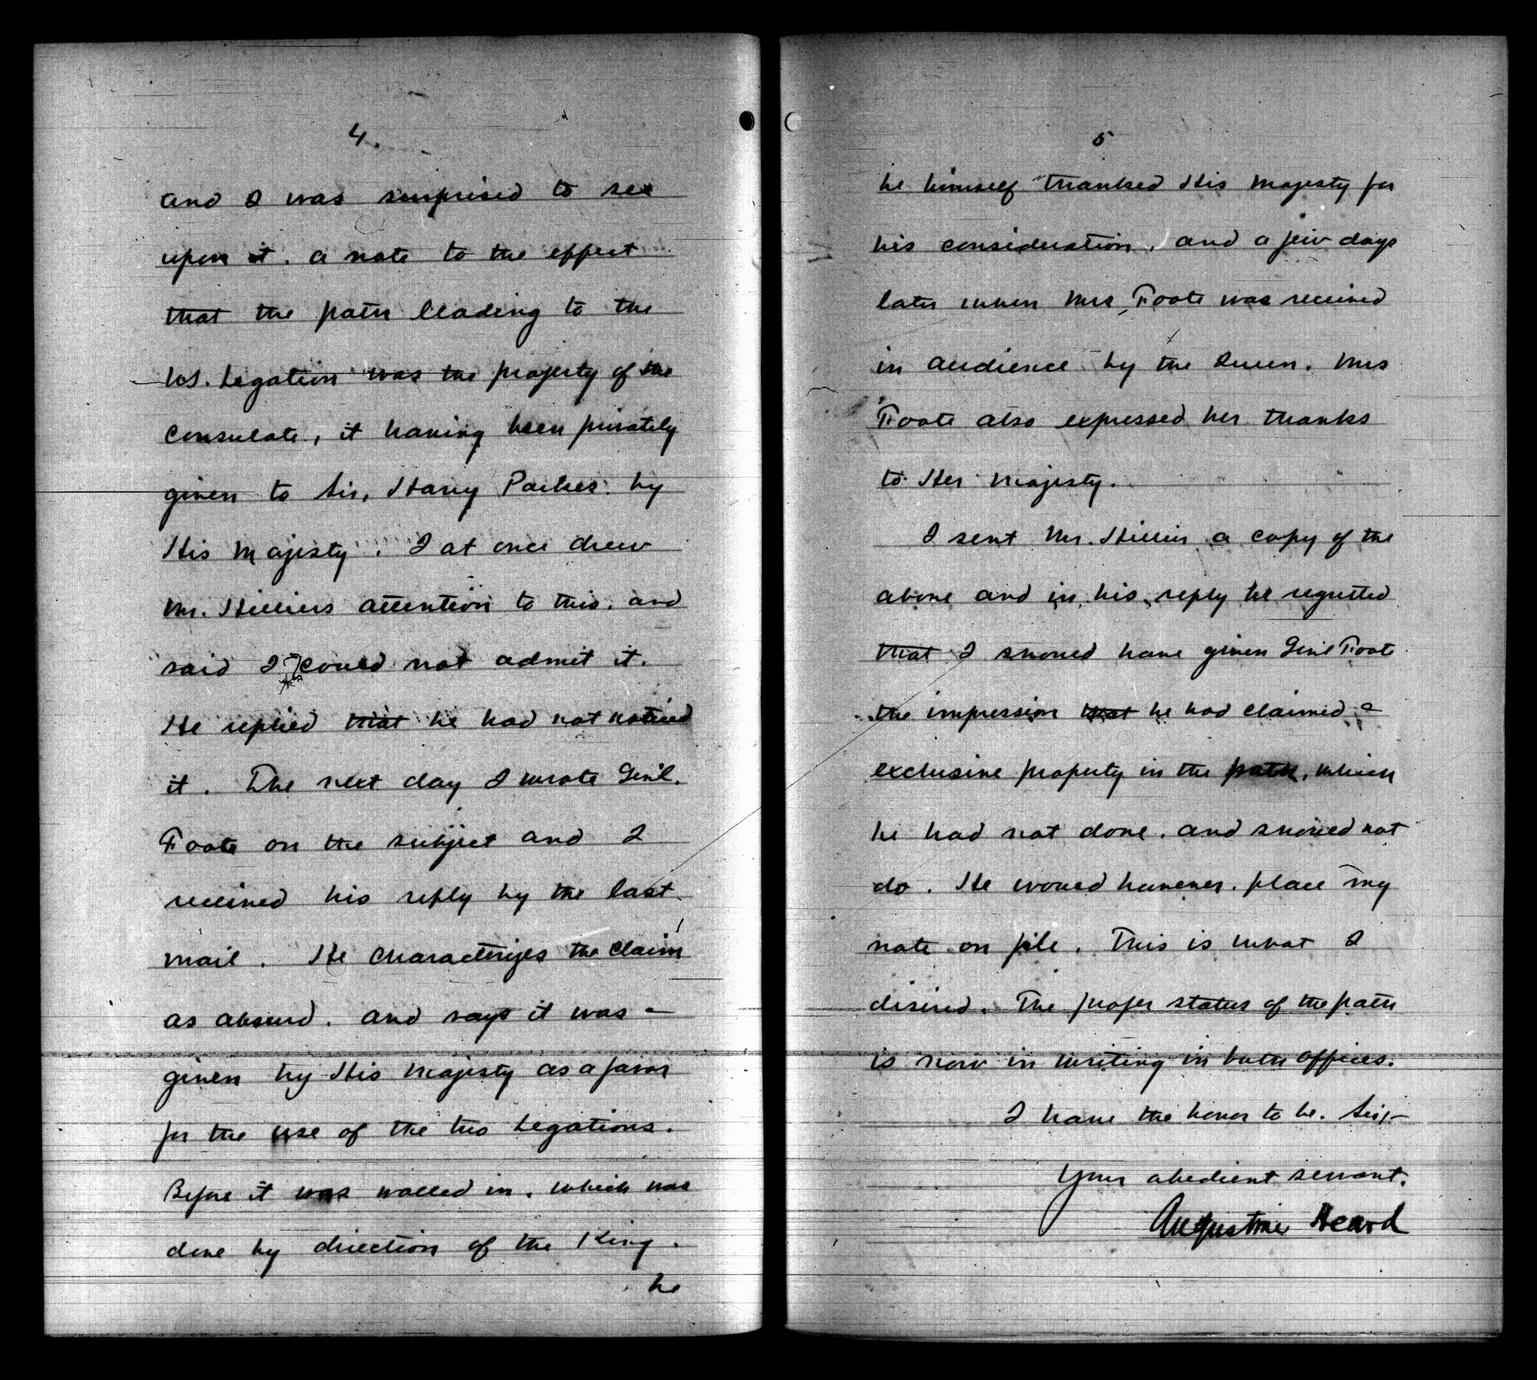 4.
and I was surprised to see
upon it. a note to the effect
that the path leading to the
U.S. Legation was the property of the
Consulate, it having been privately
given to Sir, Harry Parkes. by
His Majesty. I at once drew
Mr. Hilliers attention to this. and
said I could not admit it.
He replied that he had not noticed
it. The next day I wrote Gen'l.
Foote on the subject and I
received his reply by the last
mail. He characterizes the claim
as absurd. and says it was
given by His Majesty as a favor
for the use of the two Legations.
Before it was walled in. which was
done by direction of the King.
he
5
he himself thanked His Majesty for
his consideration, and a few days
later when Mrs, Foote was received
in audience by the Queen. Mrs
Foote also expressed her thanks
to Her Majesty.
I sent Mr. Hillier a copy of the
above and in his reply he regretted
that I should have given Genl Foot
the impression that he had claimed
exclusive property in the path, which
he had not done. and should not
do. He would however. place my
note on file. This is what I
desired. The proper status of the path
is now in writing in both offices.
I have the honor to be. Sir,
Your obedient servant.
Augustine Heard